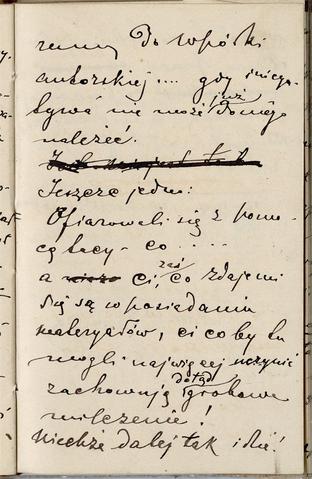 remy Do wspórki
autorskiej .... gdy inicja-
tywa nie może już do niego
należeć.
Jeszcze jedno:
Ofiarowali się z pomo-
cą tacy - co . . . .
a ci, zaś co zdaje mi
się są w posiadaniu
materyałów, ci co by tu
mogli najwięcej uczynić
zachowują dotąd grobowe
milczenie!
Niechże dalej tak idzie!